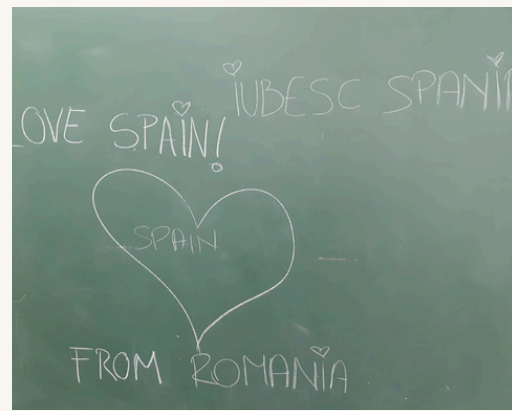 IUBESC SPANI
OVE SPAIN!
SPAIN
FROM ROMANIA